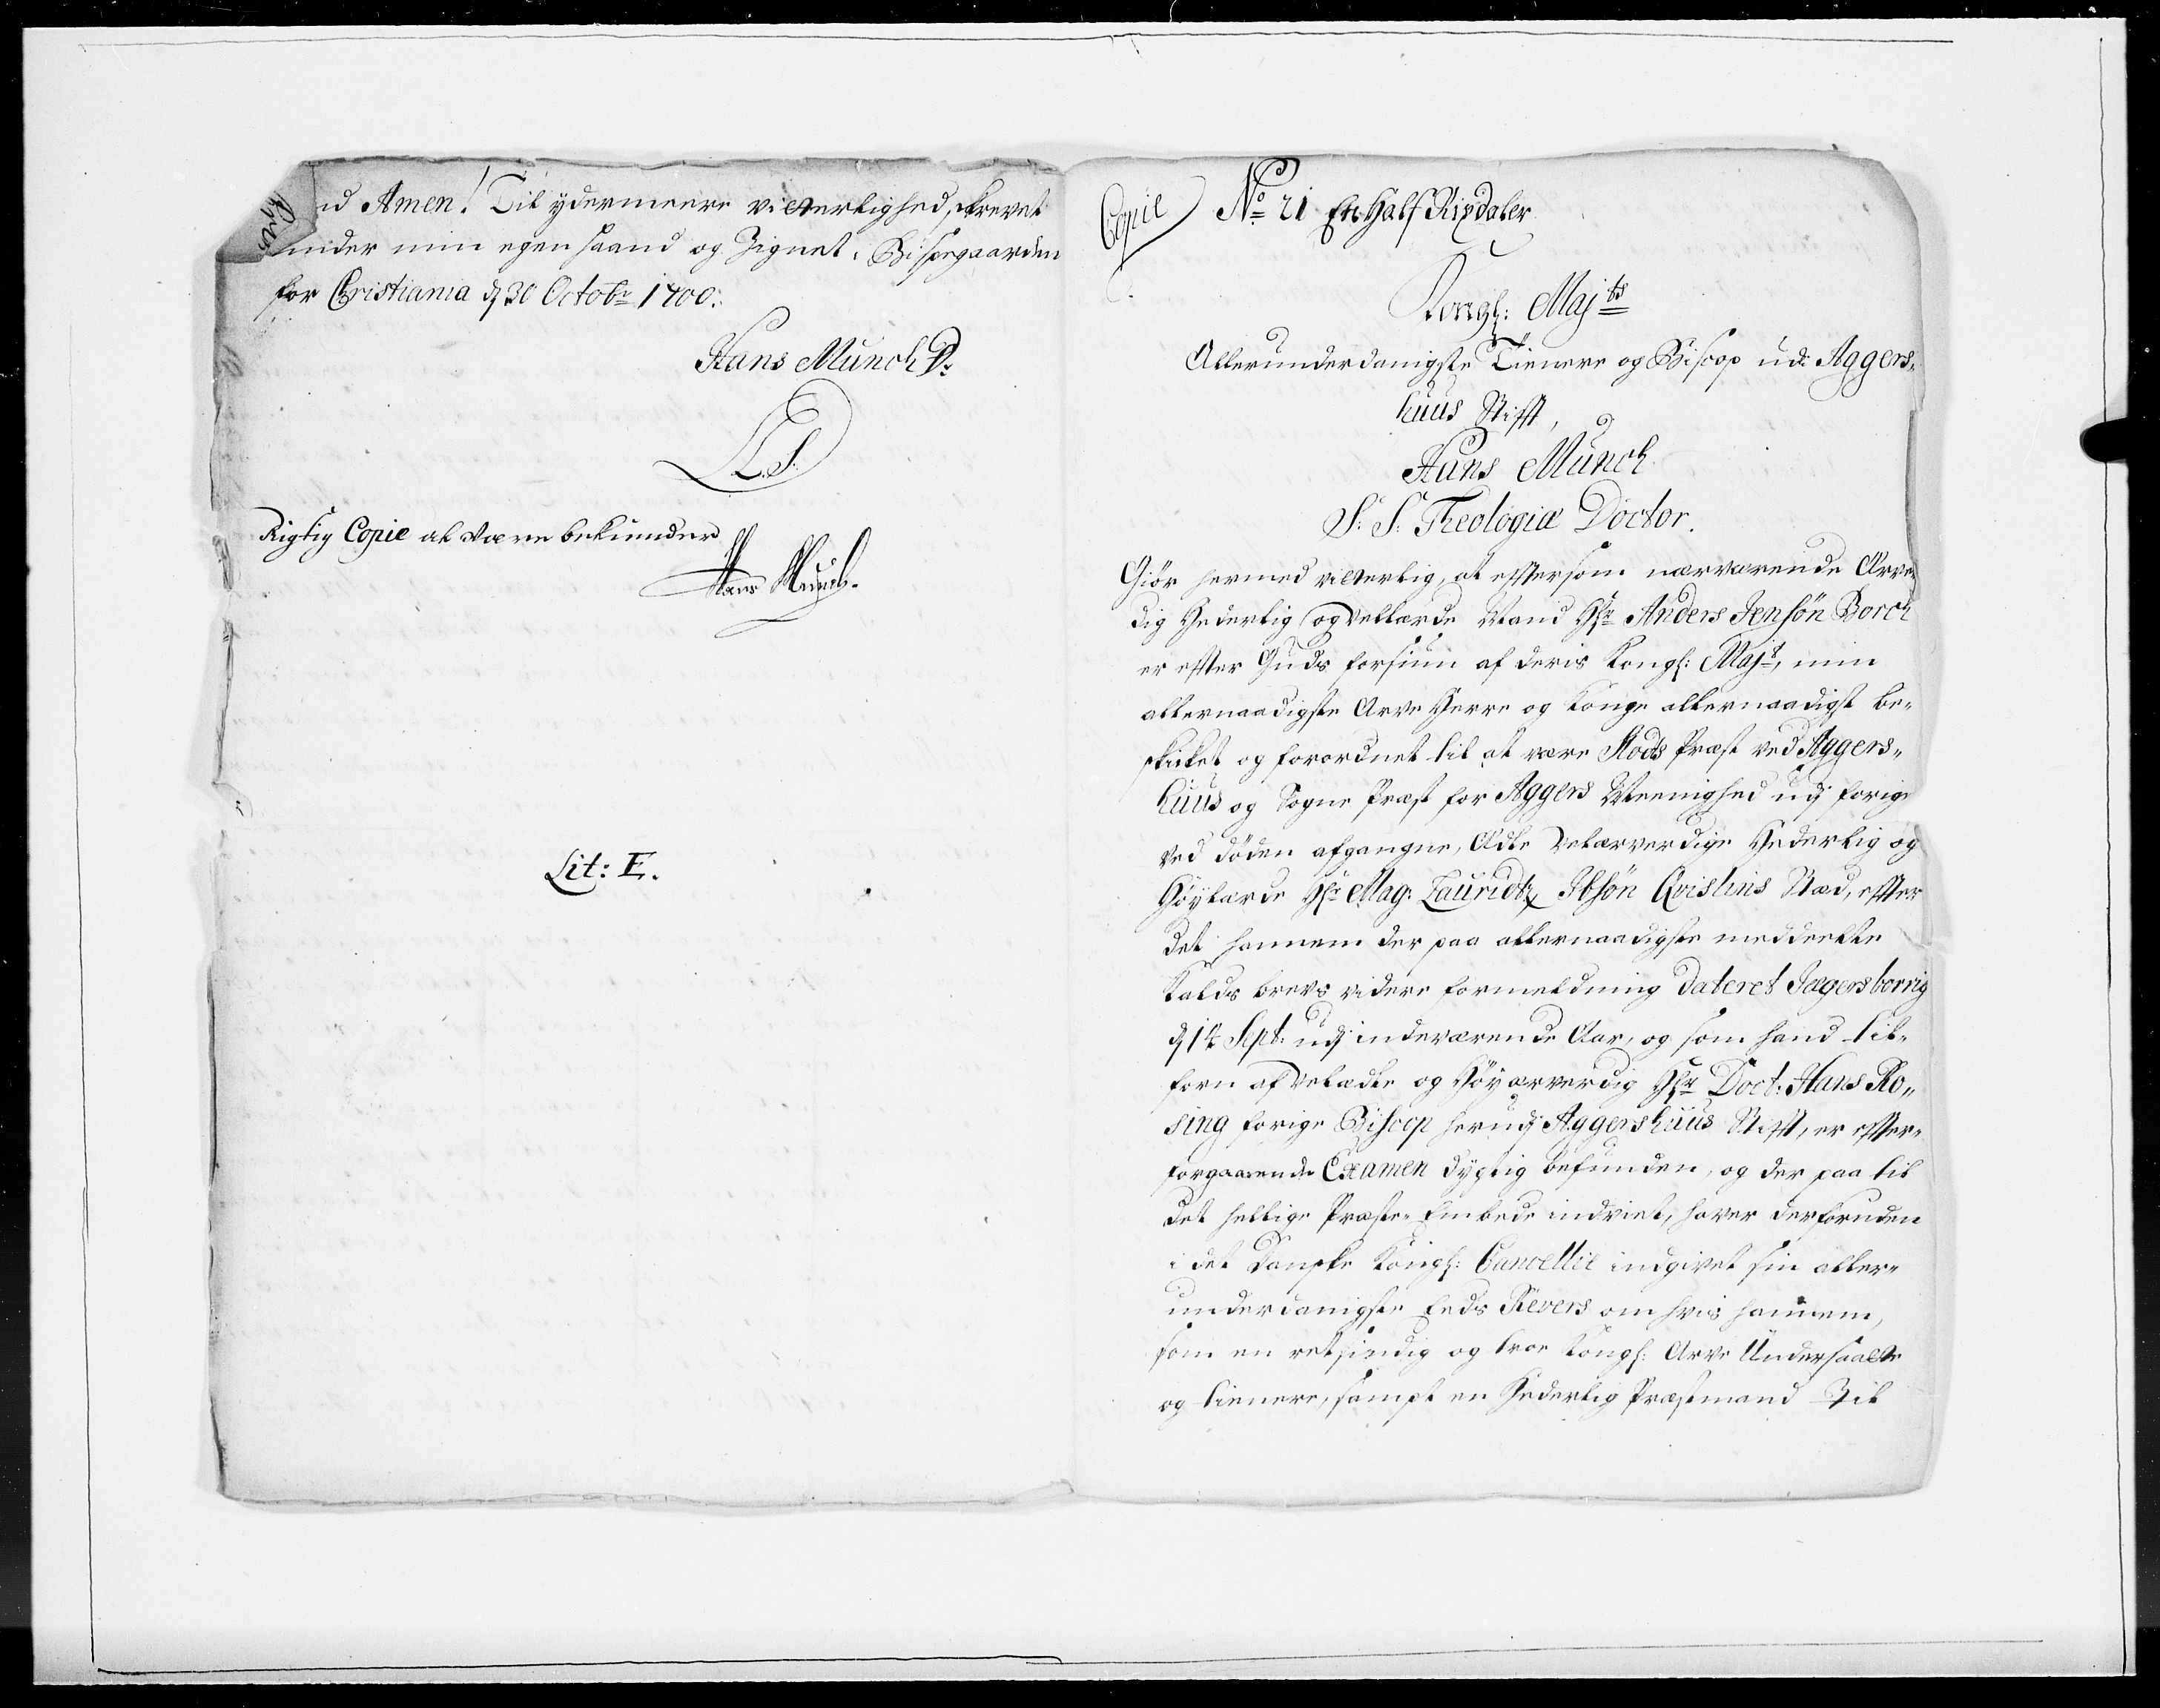 nd Amen! Til ydermeere vitterlighed, skrevet
under min egen haand og Zignet. Bispegaarden
for Christiania d 30 Octobr 1700.
Hans Munch D:
L.S.
Rigtig Copie at være bekiender
Hans Munch.
Lit: E.
Copie
No 21 En Half Rixdaler
Kongl: Majts
Allerunderdanigste Tienere og Biscop udi Aggers„
huus Stifft,
Hans Munch
S: S: Theologiæ Doctor.
Giør hermed vitterlig, at eftersom nærværende Ærvær
dig Hæderlig og Vellærde Mand Hr Anders Jensøn Borch
er efter Guds forsiun af deris Kongl: Majt, min
allernaadigste Arve Herre og Konge allernaadigst be„
skicket og forordnet til at være Slods Præst ved Aggers„
huus og Sogne Præst for Aggers Meenighed udj forige
ved døden afgangne, Ædle Velærverdige Hæderlig og
Høylærde Hr Mag: Lauridtz Ibsøn Qvislins Stæd, efter
det hannem der paa allernaadigste meddeelte
Kalds brevs videre formeldning dateret Jægersborrig
d 14 Sept: udj indeværende Aar, og som hand til„
forn af Velædle og Høyærverdig Hr Doct: Hans Ro„
sing forige Biscop herudj Aggershuus Stifft, er efter„
forgaaende Examen dygtig befunden, og der paa til
det hellige Præste„Embede indviet, haver derforuden
i det Danske Kongl: Cancellie indgivet sin aller„
underdanigste Eeds Revers om hvis hannem,
som en retsindig og troe Kongl: Arve Undersaatte
og tienere, sampt en Hæderlig Præstmand Til